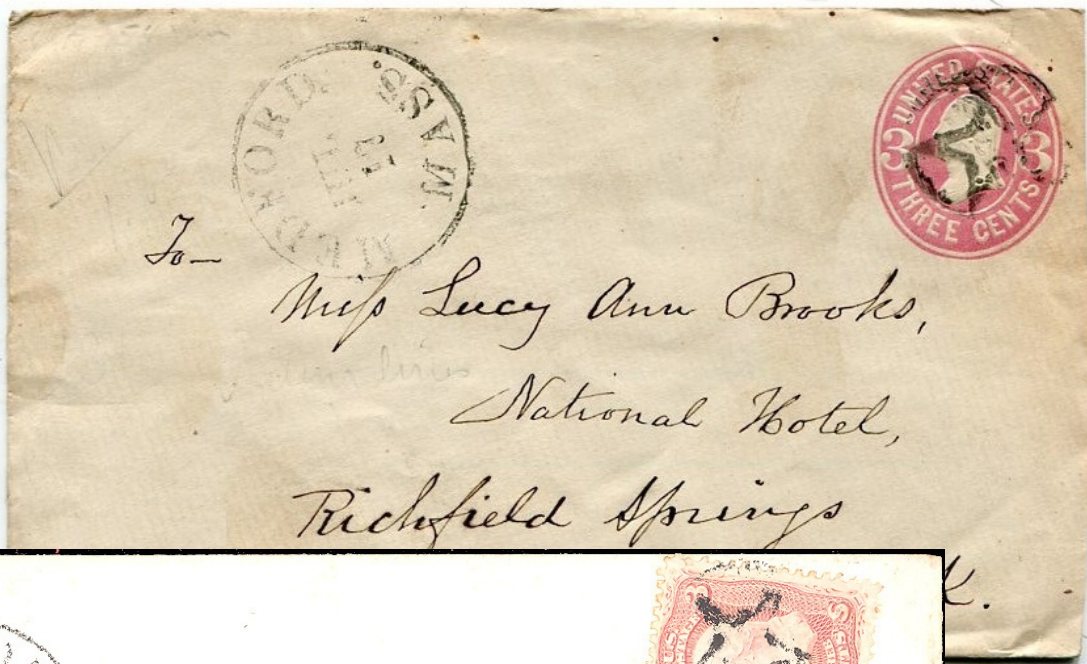 MEDFORD. MASS.
JUL
17
UNITED STATES
3 3
THREE CENTS
To—
Miss Lucy Ann Brooks,
National Hotel,
Richfield Springs
K.
3